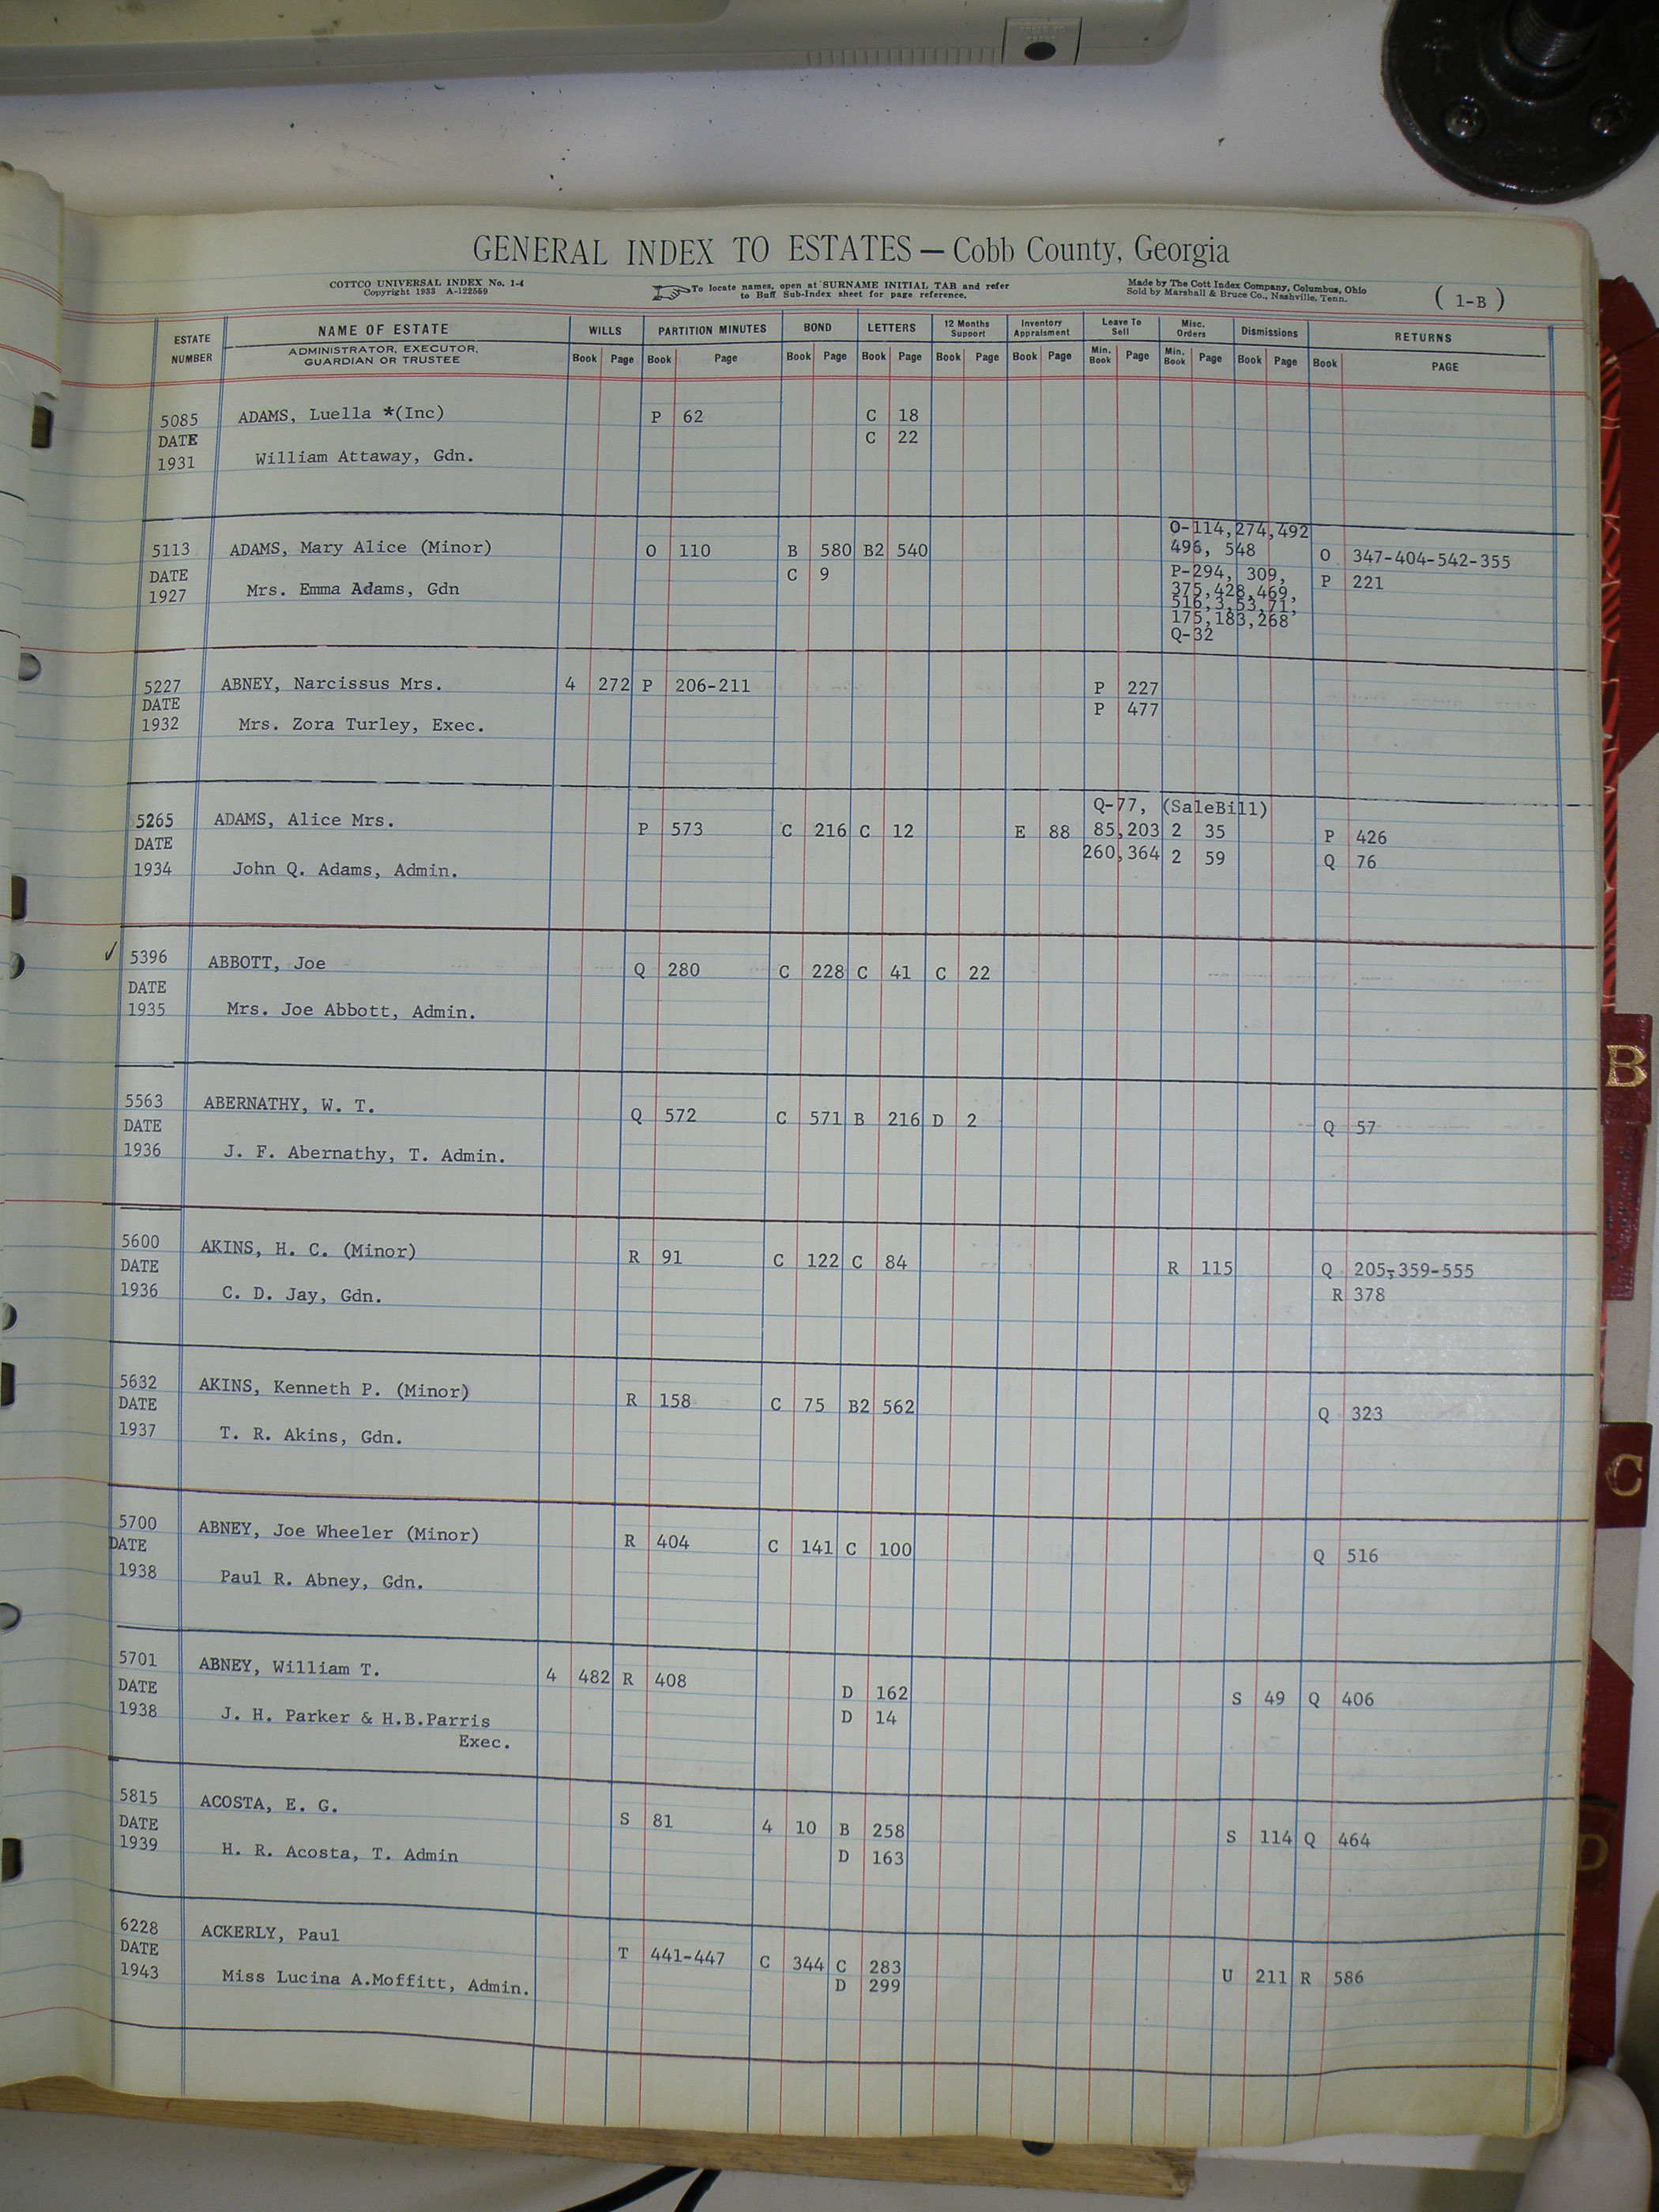 GENERAL INDEX TO ESTATES — Cobb County, Georgia
COTTCO UNIVERSAL INDEX No. 1-4
Copyright 1933 A-122559
To locate names, open at SURNAME INITIAL TAB and refer
to Buff Sub-Index sheet for page reference.
Made by The Cott Index Company, Columbus, Ohio
Sold by Marshall & Bruce Co., Nashville, Tenn.
( 1-B )
ESTATE NUMBER
NAME OF ESTATE
ADMINISTRATOR, EXECUTOR,
GUARDIAN OR TRUSTEE
WILLS PARTITION MINUTES BOND LETTERS 12 Months Support Inventory Appraisment Leave To Sell Misc. Orders Dismissions RETURNS
Book Page Book Page Book Page Book Page Book Page Book Page Min. Book Page Min. Book Page Book Page Book PAGE
5085 ADAMS, Luella *(Inc) P 62 C 18
DATE C 22
1931 William Attaway, Gdn.
O-114,274,492
5113 ADAMS, Mary Alice (Minor) O 110 B 580 B2 540 496, 548 O 347-404-542-355
DATE C 9 P-294, 309, P 221
1927 Mrs. Emma Adams, Gdn 375,428,469,
516,3,53,71,
175,183,268
Q-32
5227 ABNEY, Narcissus Mrs. 4 272 P 206-211 P 227
DATE P 477
1932 Mrs. Zora Turley, Exec.
Q-77, (SaleBill)
5265 ADAMS, Alice Mrs. P 573 C 216 C 12 E 88 85,203 2 35 P 426
DATE 260,364 2 59 Q 76
1934 John Q. Adams, Admin.
✓ 5396 ABBOTT, Joe Q 280 C 228 C 41 C 22
DATE
1935 Mrs. Joe Abbott, Admin.
5563 ABERNATHY, W. T. Q 572 C 571 B 216 D 2 Q 57
DATE
1936 J. F. Abernathy, T. Admin.
5600 AKINS, H. C. (Minor) R 91 C 122 C 84 R 115 Q 205-359-555
DATE R 378
1936 C. D. Jay, Gdn.
5632 AKINS, Kenneth P. (Minor) R 158 C 75 B2 562 Q 323
DATE
1937 T. R. Akins, Gdn.
5700 ABNEY, Joe Wheeler (Minor) R 404 C 141 C 100 Q 516
DATE
1938 Paul R. Abney, Gdn.
5701 ABNEY, William T. 4 482 R 408 D 162 S 49 Q 406
DATE D 14
1938 J. H. Parker & H.B.Parris
Exec.
5815 ACOSTA, E. G. S 81 4 10 B 258 S 114 Q 464
DATE D 163
1939 H. R. Acosta, T. Admin
6228 ACKERLY, Paul T 441-447 C 344 C 283 U 211 R 586
DATE D 299
1943 Miss Lucina A.Moffitt, Admin.
B
C
D